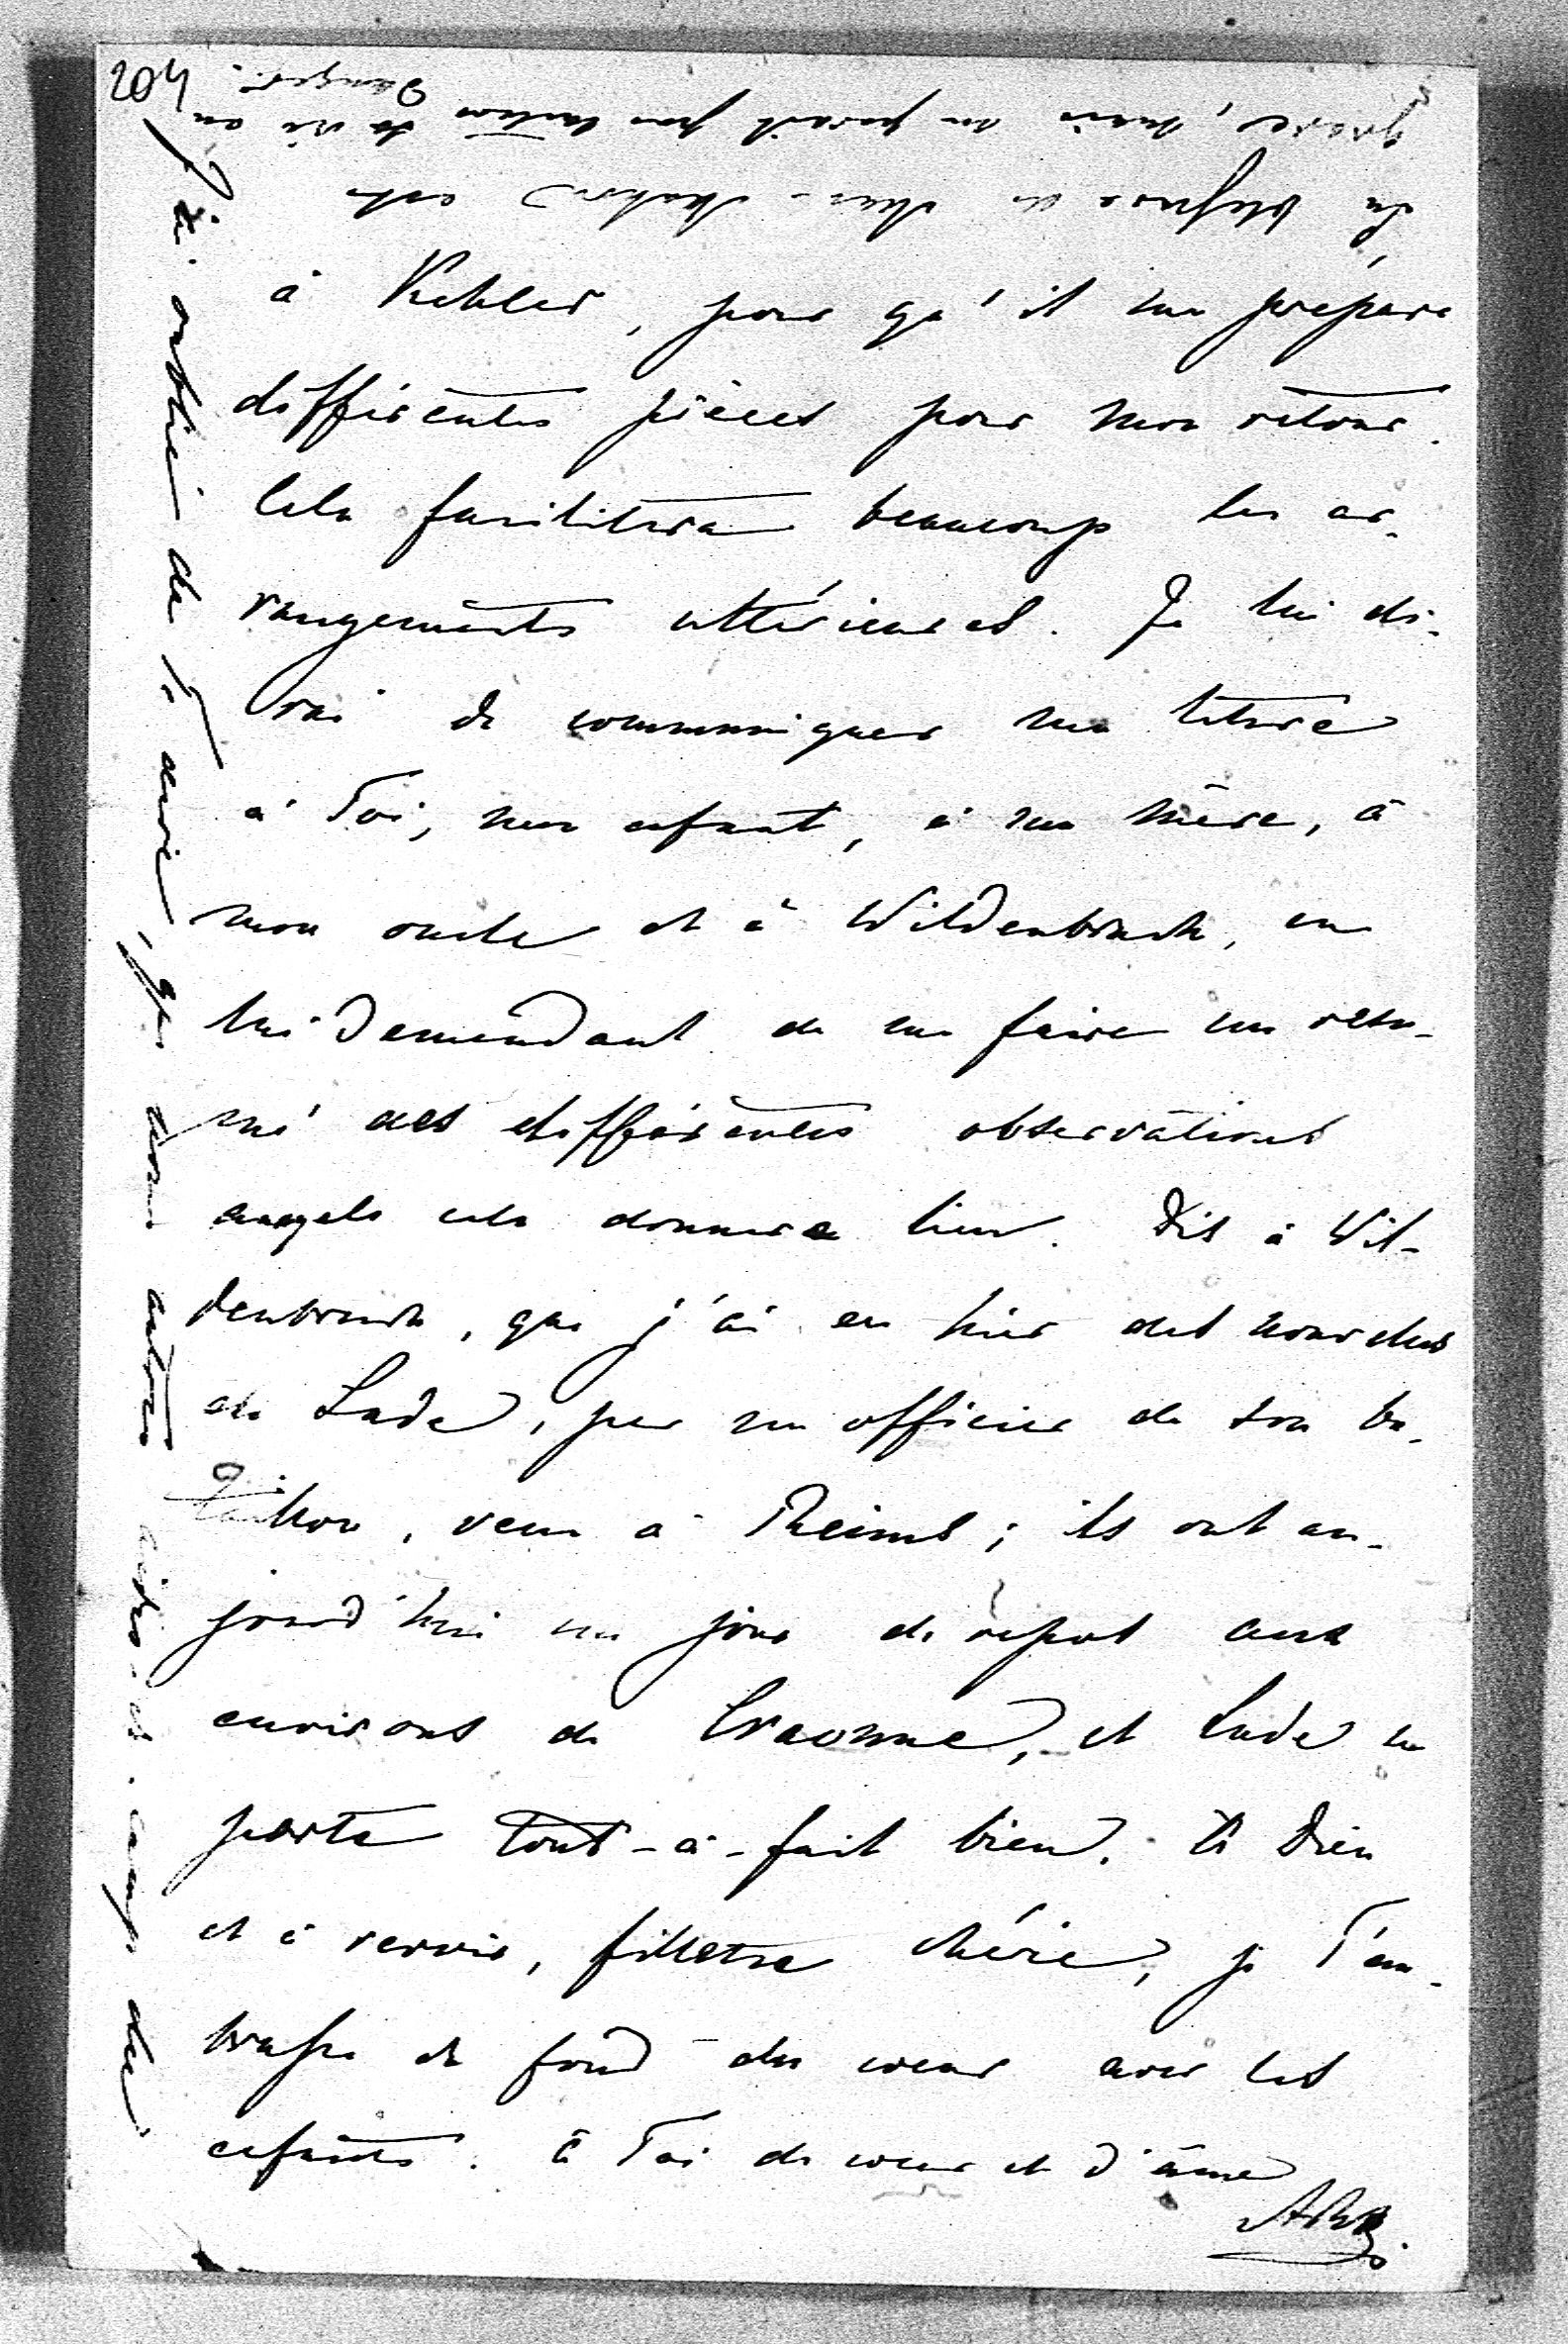 204
à Kehler, pour qu'il me prépare
différentes pièces pour mon retour.
Cela facilitera beaucoup les ar-
rangements ultérieures. Je lui di-
rai de communiquer ma lettre
à Toi, mon enfant, à ma mère, à
mon oncle et à Wildenbruch, en
lui demandant de me faire un resu-
mé des différentes observations
auxquels cela donnera lieu. Dis à Wil-
denbruch, que j'ai eu hier des nouvelles
de Lude, par un officier de son ba-
taillon, venu à Rheims; ils ont au-
jourd'hui un jour de repos aux
environs de Craonne, et Lude se
porte tout-à-fait bien. A Dieu
et à revoir, fillette chérie, je T'em-
brasse du fond du coeur avec les
enfants. à Toi de coeur et d'âme
J'ai oublié de Te dire, que nous avons
aides-de-camp du
La blessure de Mac-Mahon est
grave, mais ne paraît pas mettre sa vie en
danger.